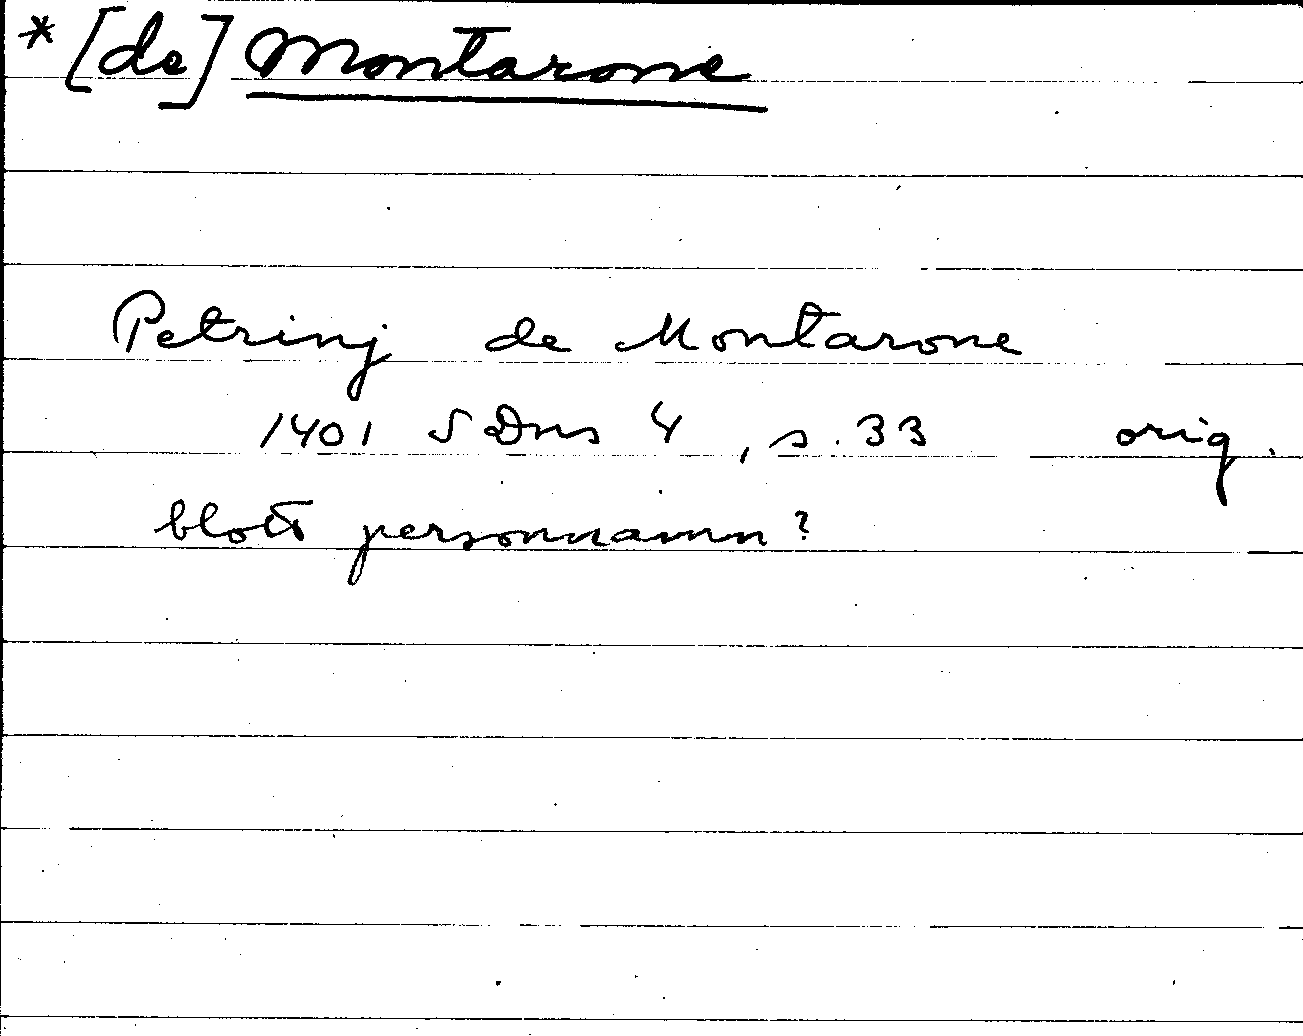 * [de] Montarone
Petrinj de Montarone
1401 SDns 4, s. 33 orig.
blott personnamn?